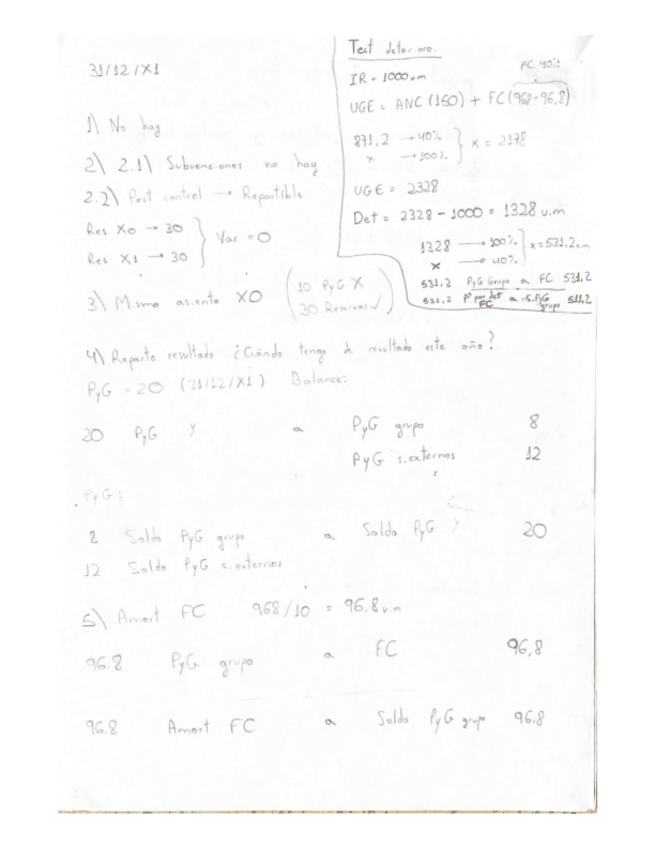 31/12/X1
1) No hay
2) 2.1) Subvenciones no hay
2.2) Post control → Repartible
Res X0 → 30
Res X1 → 30
Var = 0
3) Mismo asiento X0
10 PyG X
30 Reservas ✓
Test deterioro.
FC 40%
IR = 1000 um
UGE = ANC (150) + FC (968-96,8)
871,2 → 40%
x → 100%
x = 2178
UGE = 2328
Det = 2328 - 1000 = 1328 u.m
1328 → 100%
x → 40%
x = 531,2 um
531.2 PyG Grupo a FC 531.2
531.2 Pº por det FC a S.PyG grupo 531,2
4) Reparto resultado ¿Cuándo tengo de resultado este año?
PyG = 20 (31/12/X1) Balance:
20 PyG Y a PyG grupo 8
PyG s.externos 12
PyG:
8 Saldo PyG grupo a Saldo PyG Y 20
12 Saldo PyG s.externos
5) Amort FC 968/10 = 96,8 u.m
96.8 PyG grupo a FC 96,8
96.8 Amort FC a Saldo PyG grupo 96.8